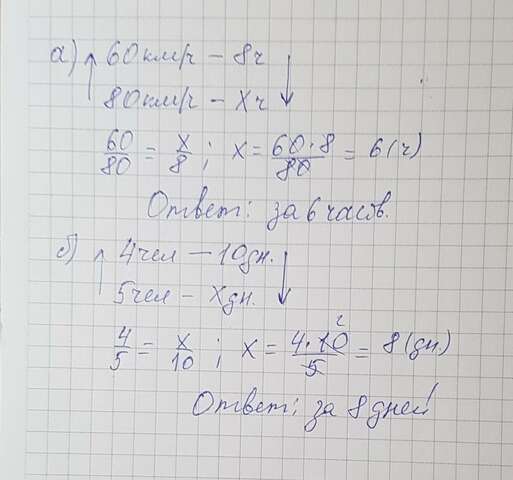 а) 60 км/ч – 8ч
80 км/ч – Xч
60/80 = x/8 ; x = 60·8/80 = 6 (ч)
Ответ: за 6 часов.
б) 4 чел – 10дн.
5 чел – X дн.
4/5 = x/10 ; x = 4·10/5 2 = 8 (дн.)
Ответ: за 8 дней